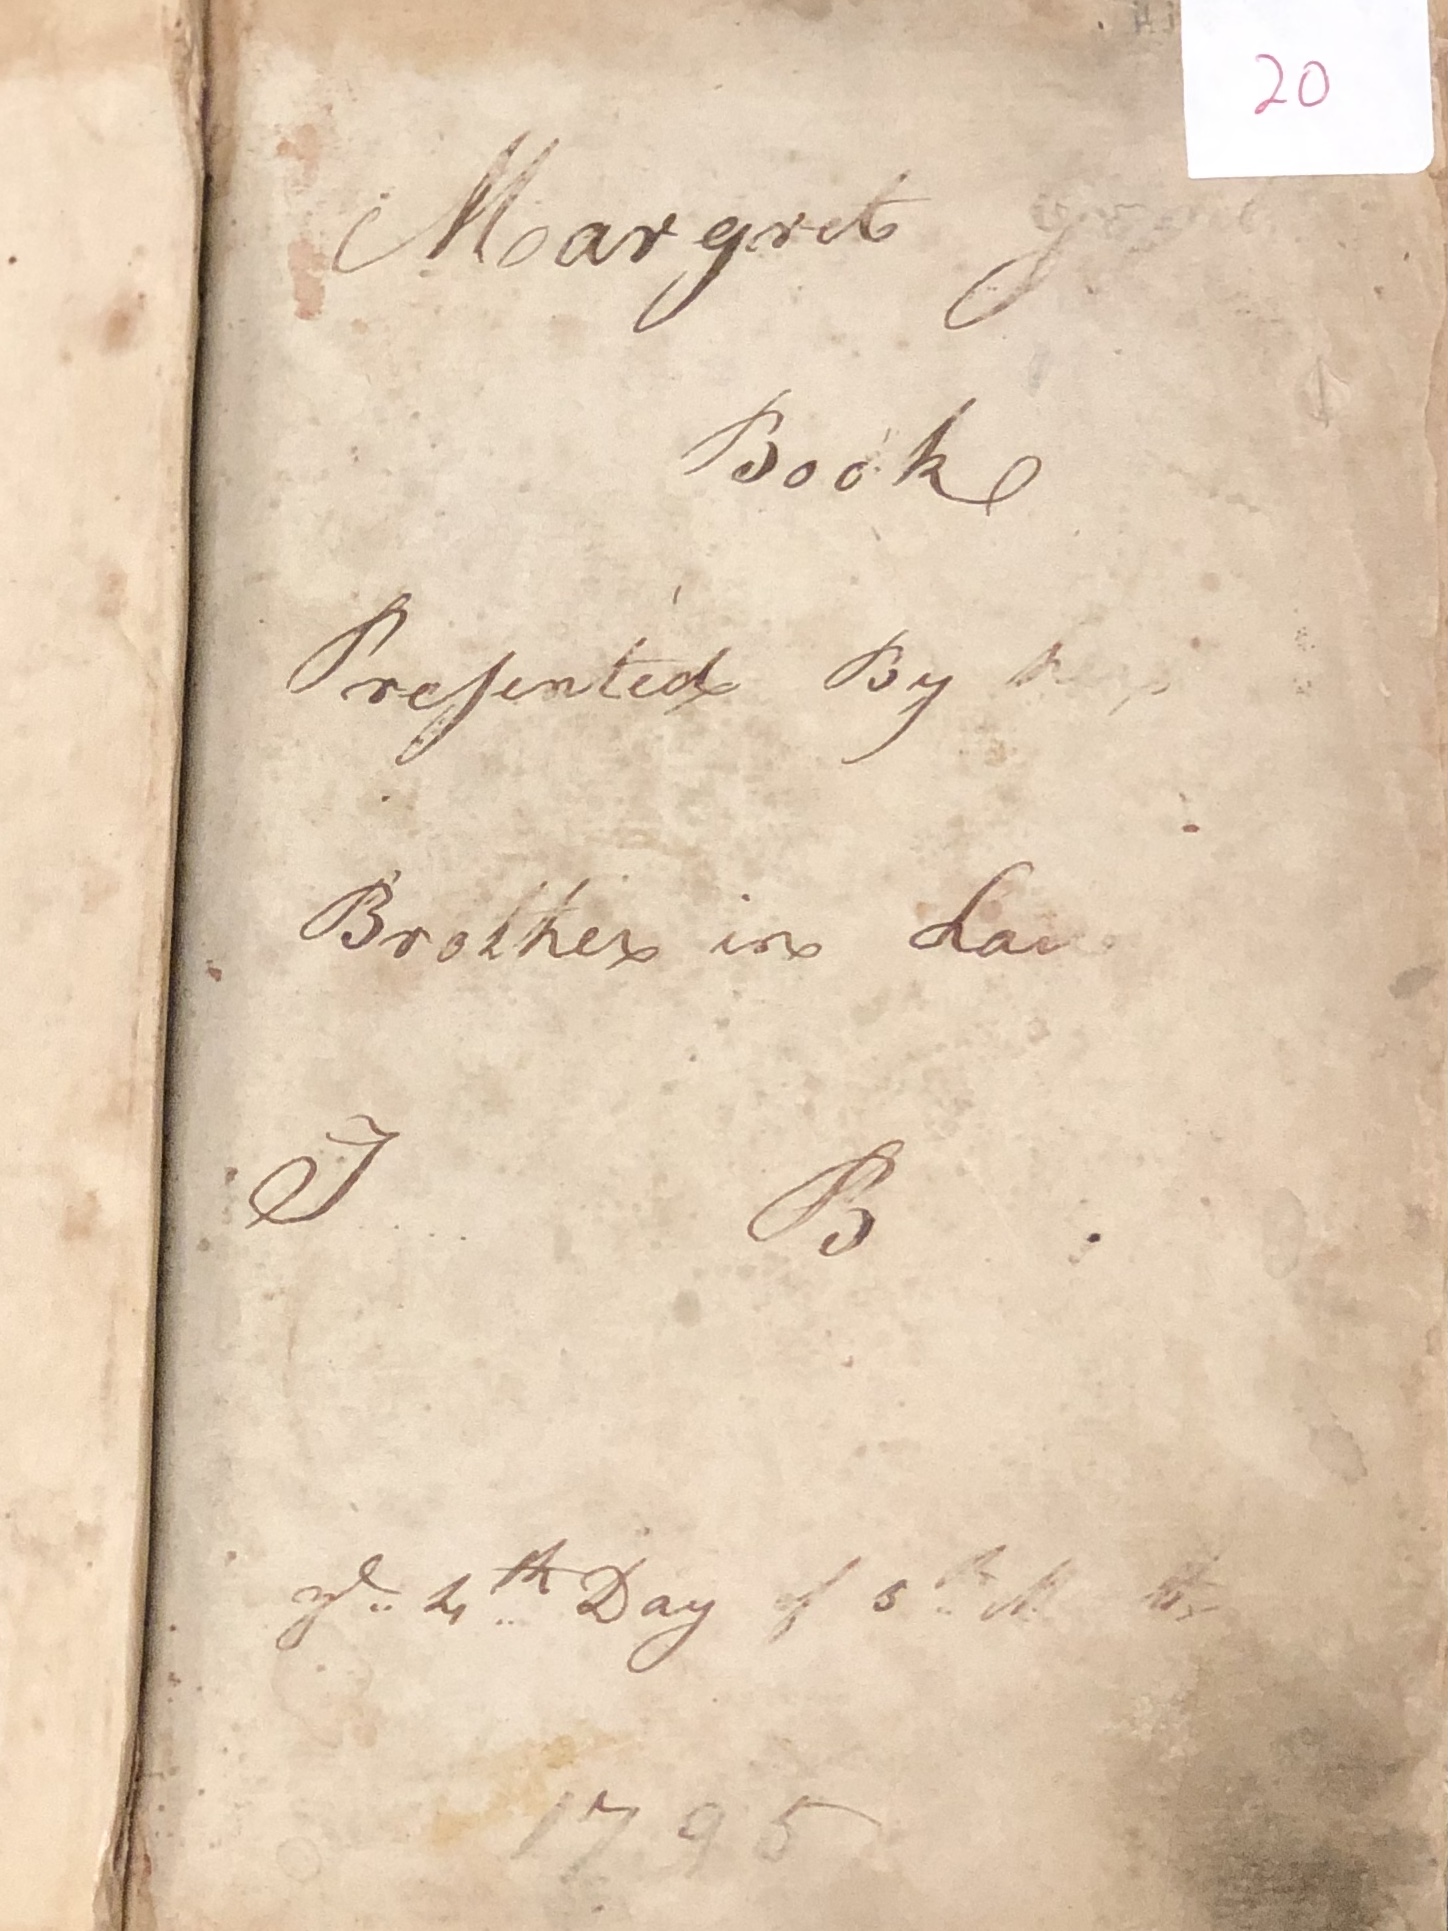 20
Margret
Book
Preſented By her
Brother in Law
J B
ye 4th Day of 5th Month
1795